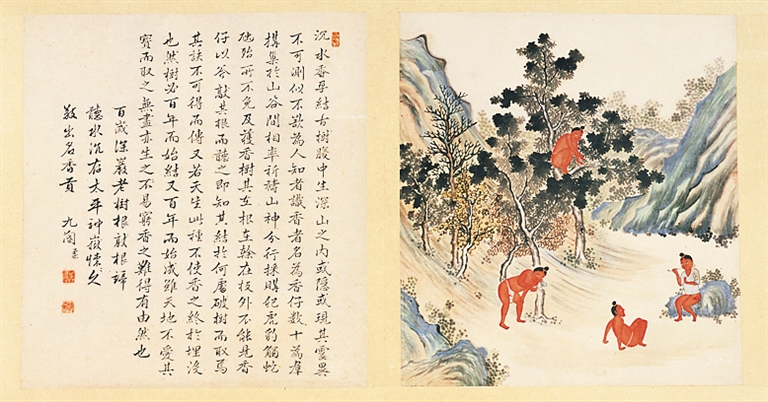 沉水香孕結古樹腹中生深山之內或隱或現其靈異
不可測似不欲為人知者識香者名為香仔數十為羣
搆巢於山谷間相率祈禱山神分行採購犯虎豹觸蛇
虺殆所不免及獲香樹其在根在榦在枝外不能見香
仔以斧敲其根而聽之即知其結於何處破樹而取焉
其訣不可得而傳又若天生此種不使香之終於埋沒
也然樹必百年而始結又百年而始成雖天地不愛其
寶而取之無盡亦生之不易窮香之難得有由然也
百歲深巖老樹根敲根諦
聽水沉存太平神嶽懷柔久
敬出名香貢 九閽